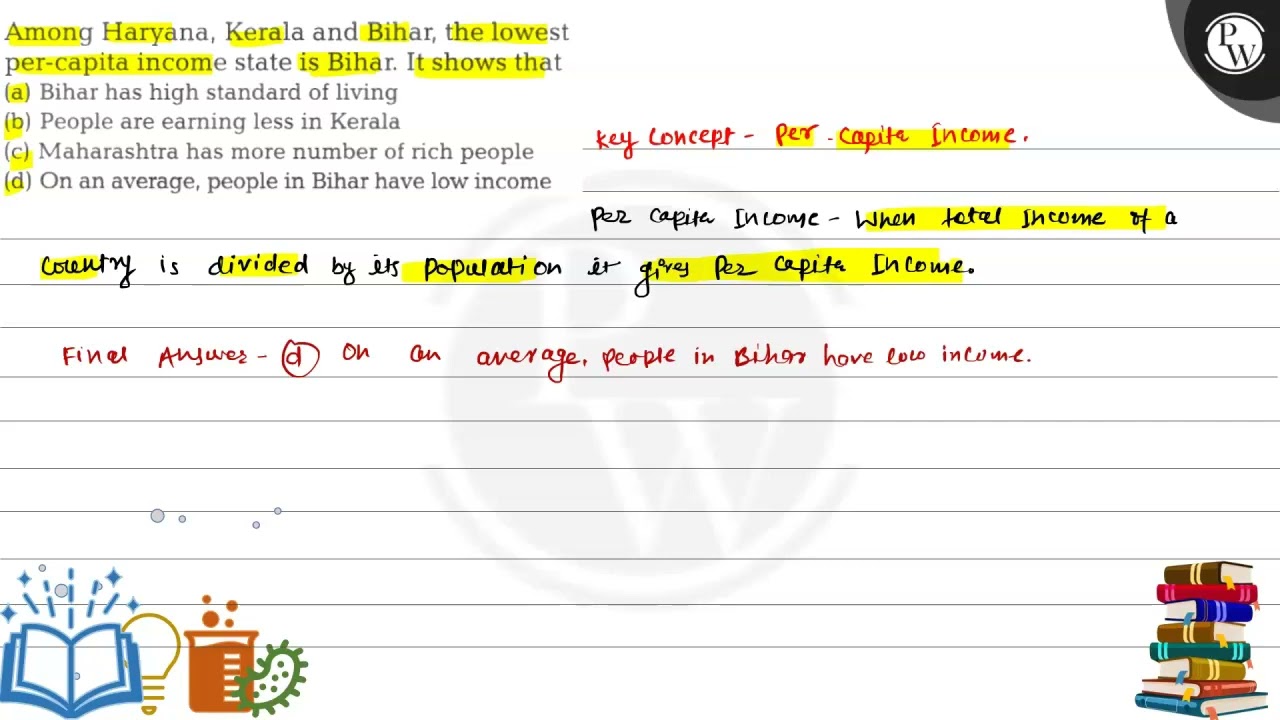 Among Haryana, Kerala and Bihar, the lowest
per-capita income state is Bihar. It shows that
(a) Bihar has high standard of living
(b) People are earning less in Kerala
(c) Maharashtra has more number of rich people
(d) On an average, people in Bihar have low income
Key Concept - Per - Capita Income.
Per Capita Income - When total Income of a
country is divided by its population it gives Per Capita Income.
Final Answer - (d) On an average, people in Bihar have low income.
PW
PW